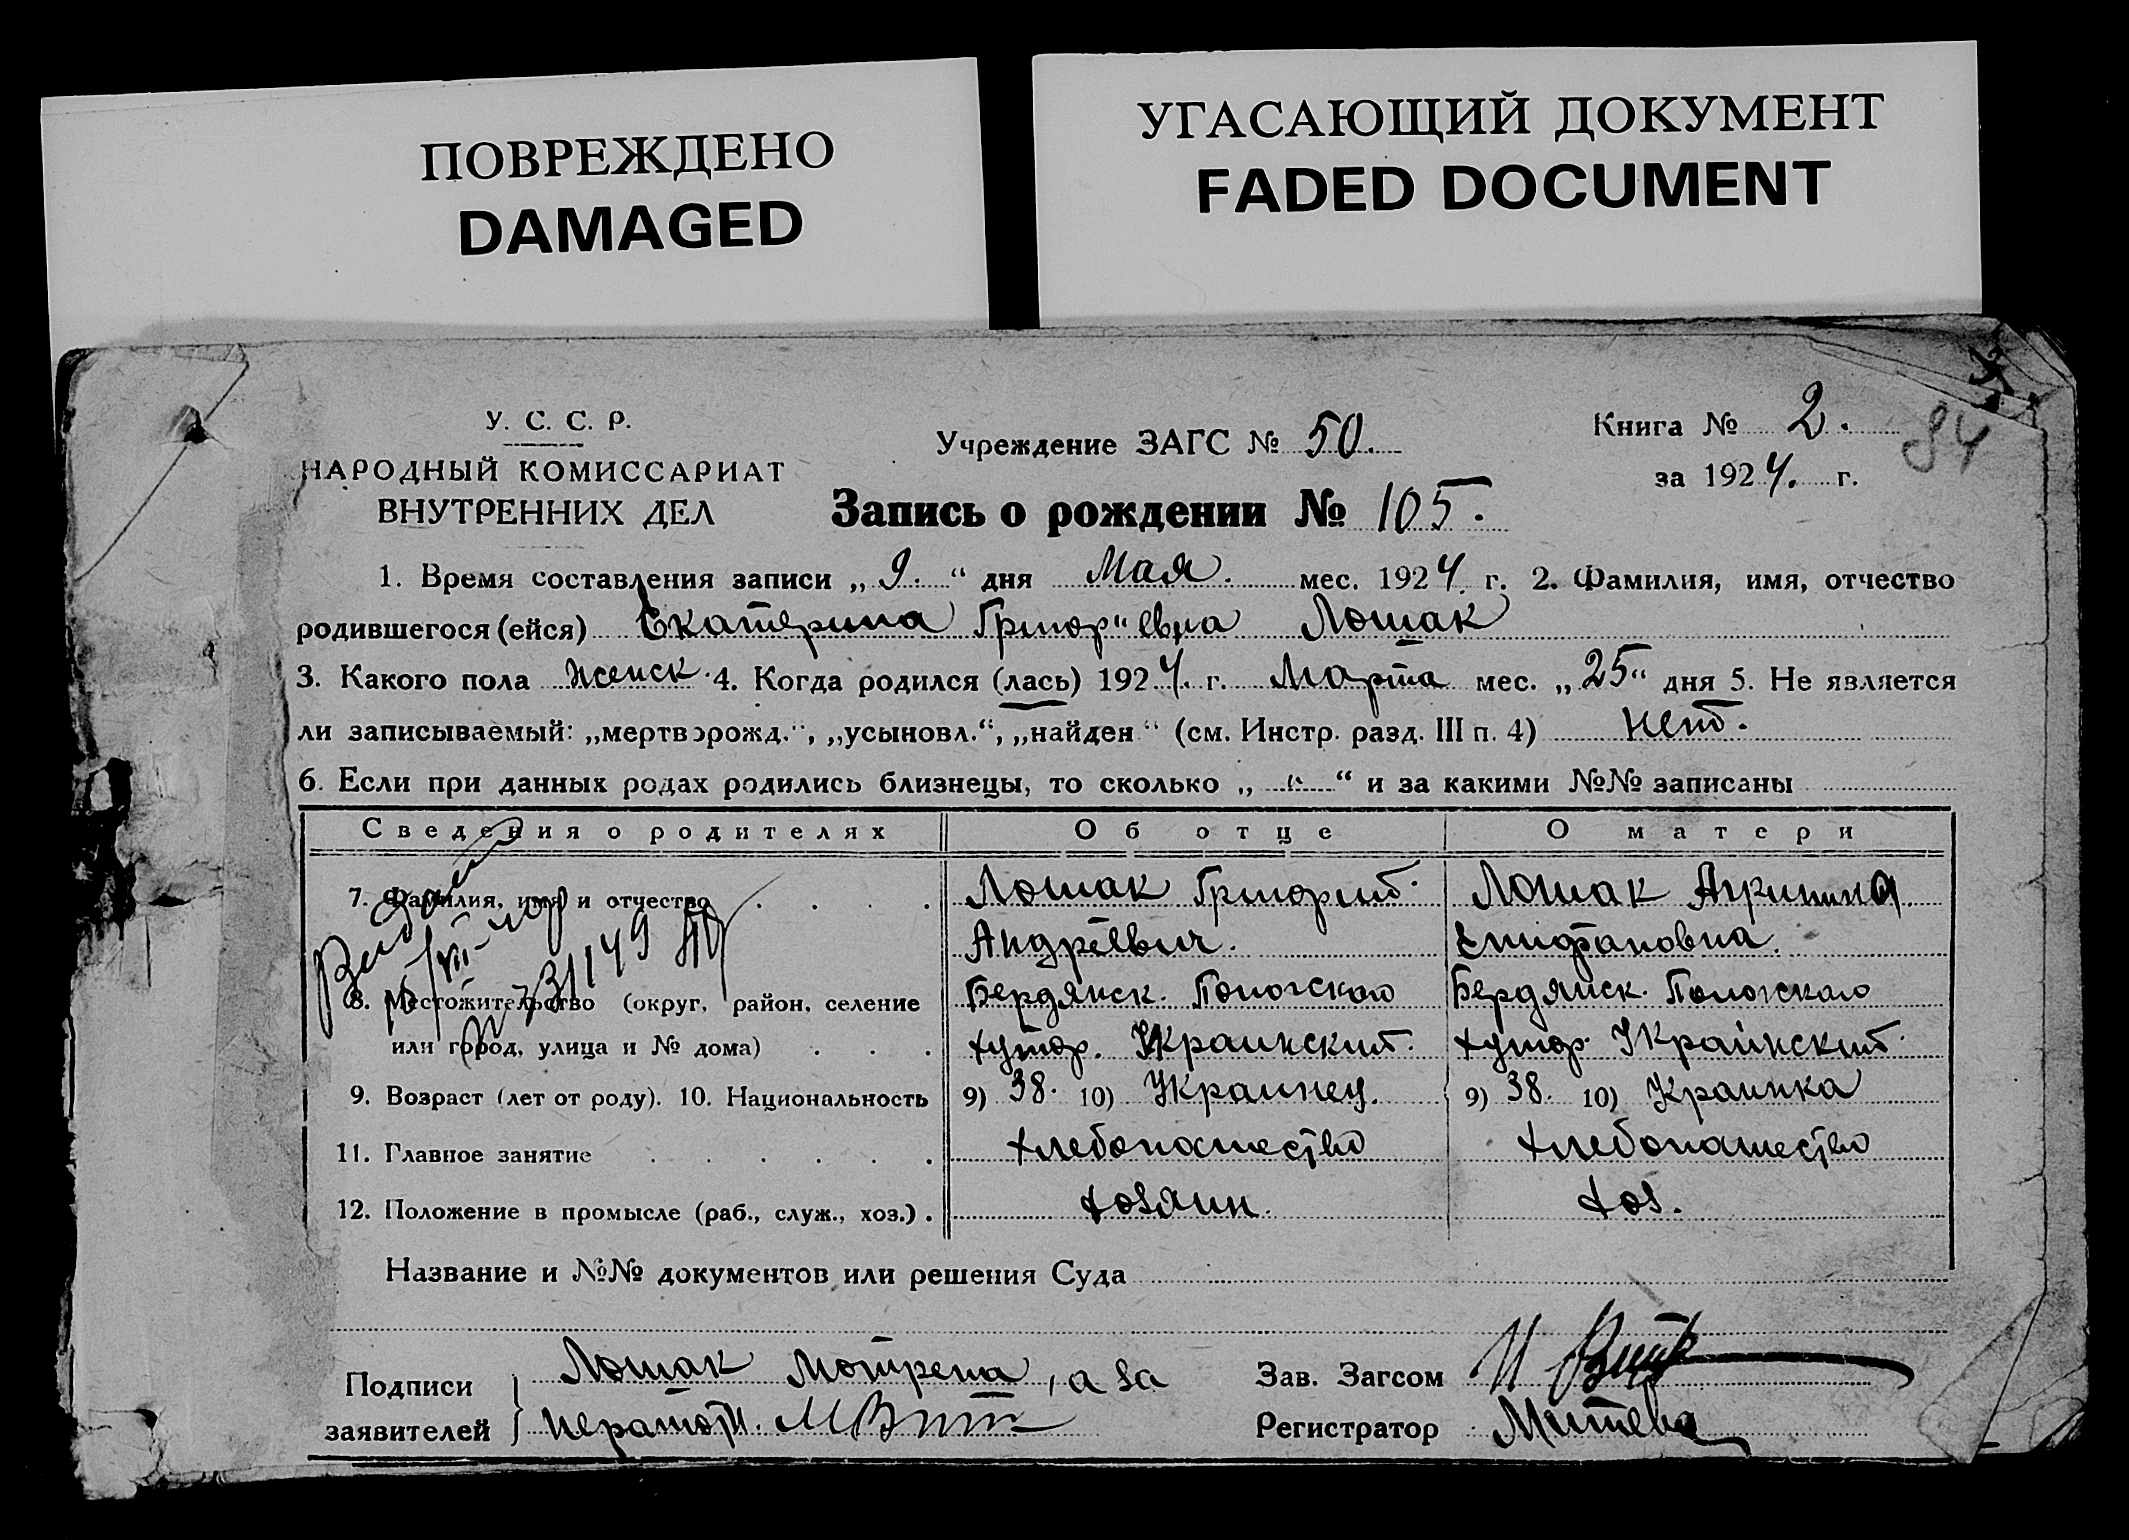 ПОВРЕЖДЕНО
DAMAGED
УГАСАЮЩИЙ ДОКУМЕНТ
FADED DOCUMENT
У. С. С. Р.
НАРОДНЫЙ КОМИССАРИАТ
ВНУТРЕННИХ ДЕЛ
Учреждение ЗАГС № 50.
Книга № 2.
за 1924. г.
84
Запись о рождении № 105.
1. Время составления записи „9.“ дня Мая. мес. 1924 г. 2. Фамилия, имя, отчество
родившегося (ейся) Екатерина Григор"евна Лошак
3. Какого пола женск. 4. Когда родился (лась) 1924. г. Марта мес. „25“ дня 5. Не является
ли записываемый: „мертворожд.“, „усыновл.“, „найден“ (см. Инстр. разд. III п. 4) нет.
6. Если при данных родах родились близнецы, то сколько „ “ и за какими №№ записаны
Сведения о родителях Об отце О матери
7. Фамилия, имя и отчество Лошак Григорий Лошак Агрипина
Андреевич. Епифановна.
8. Местожительство (округ, район, селение Бердянск. Пологского Бердянск. Пологскаго
или город, улица и № дома) хутор. Украинский. хутор. Украинский.
9. Возраст (лет от роду). 10. Национальность 9) 38. 10) Украинец. 9) 38. 10) Украинка
11. Главное занятие хлебопашество хлебопашество
12. Положение в промысле (раб., служ., хоз.). хозяин. хоз.
Название и №№ документов или решения Суда
Подписи Лошак Мотрена, а за Зав. Загсом
заявителей неграмотн. Регистратор